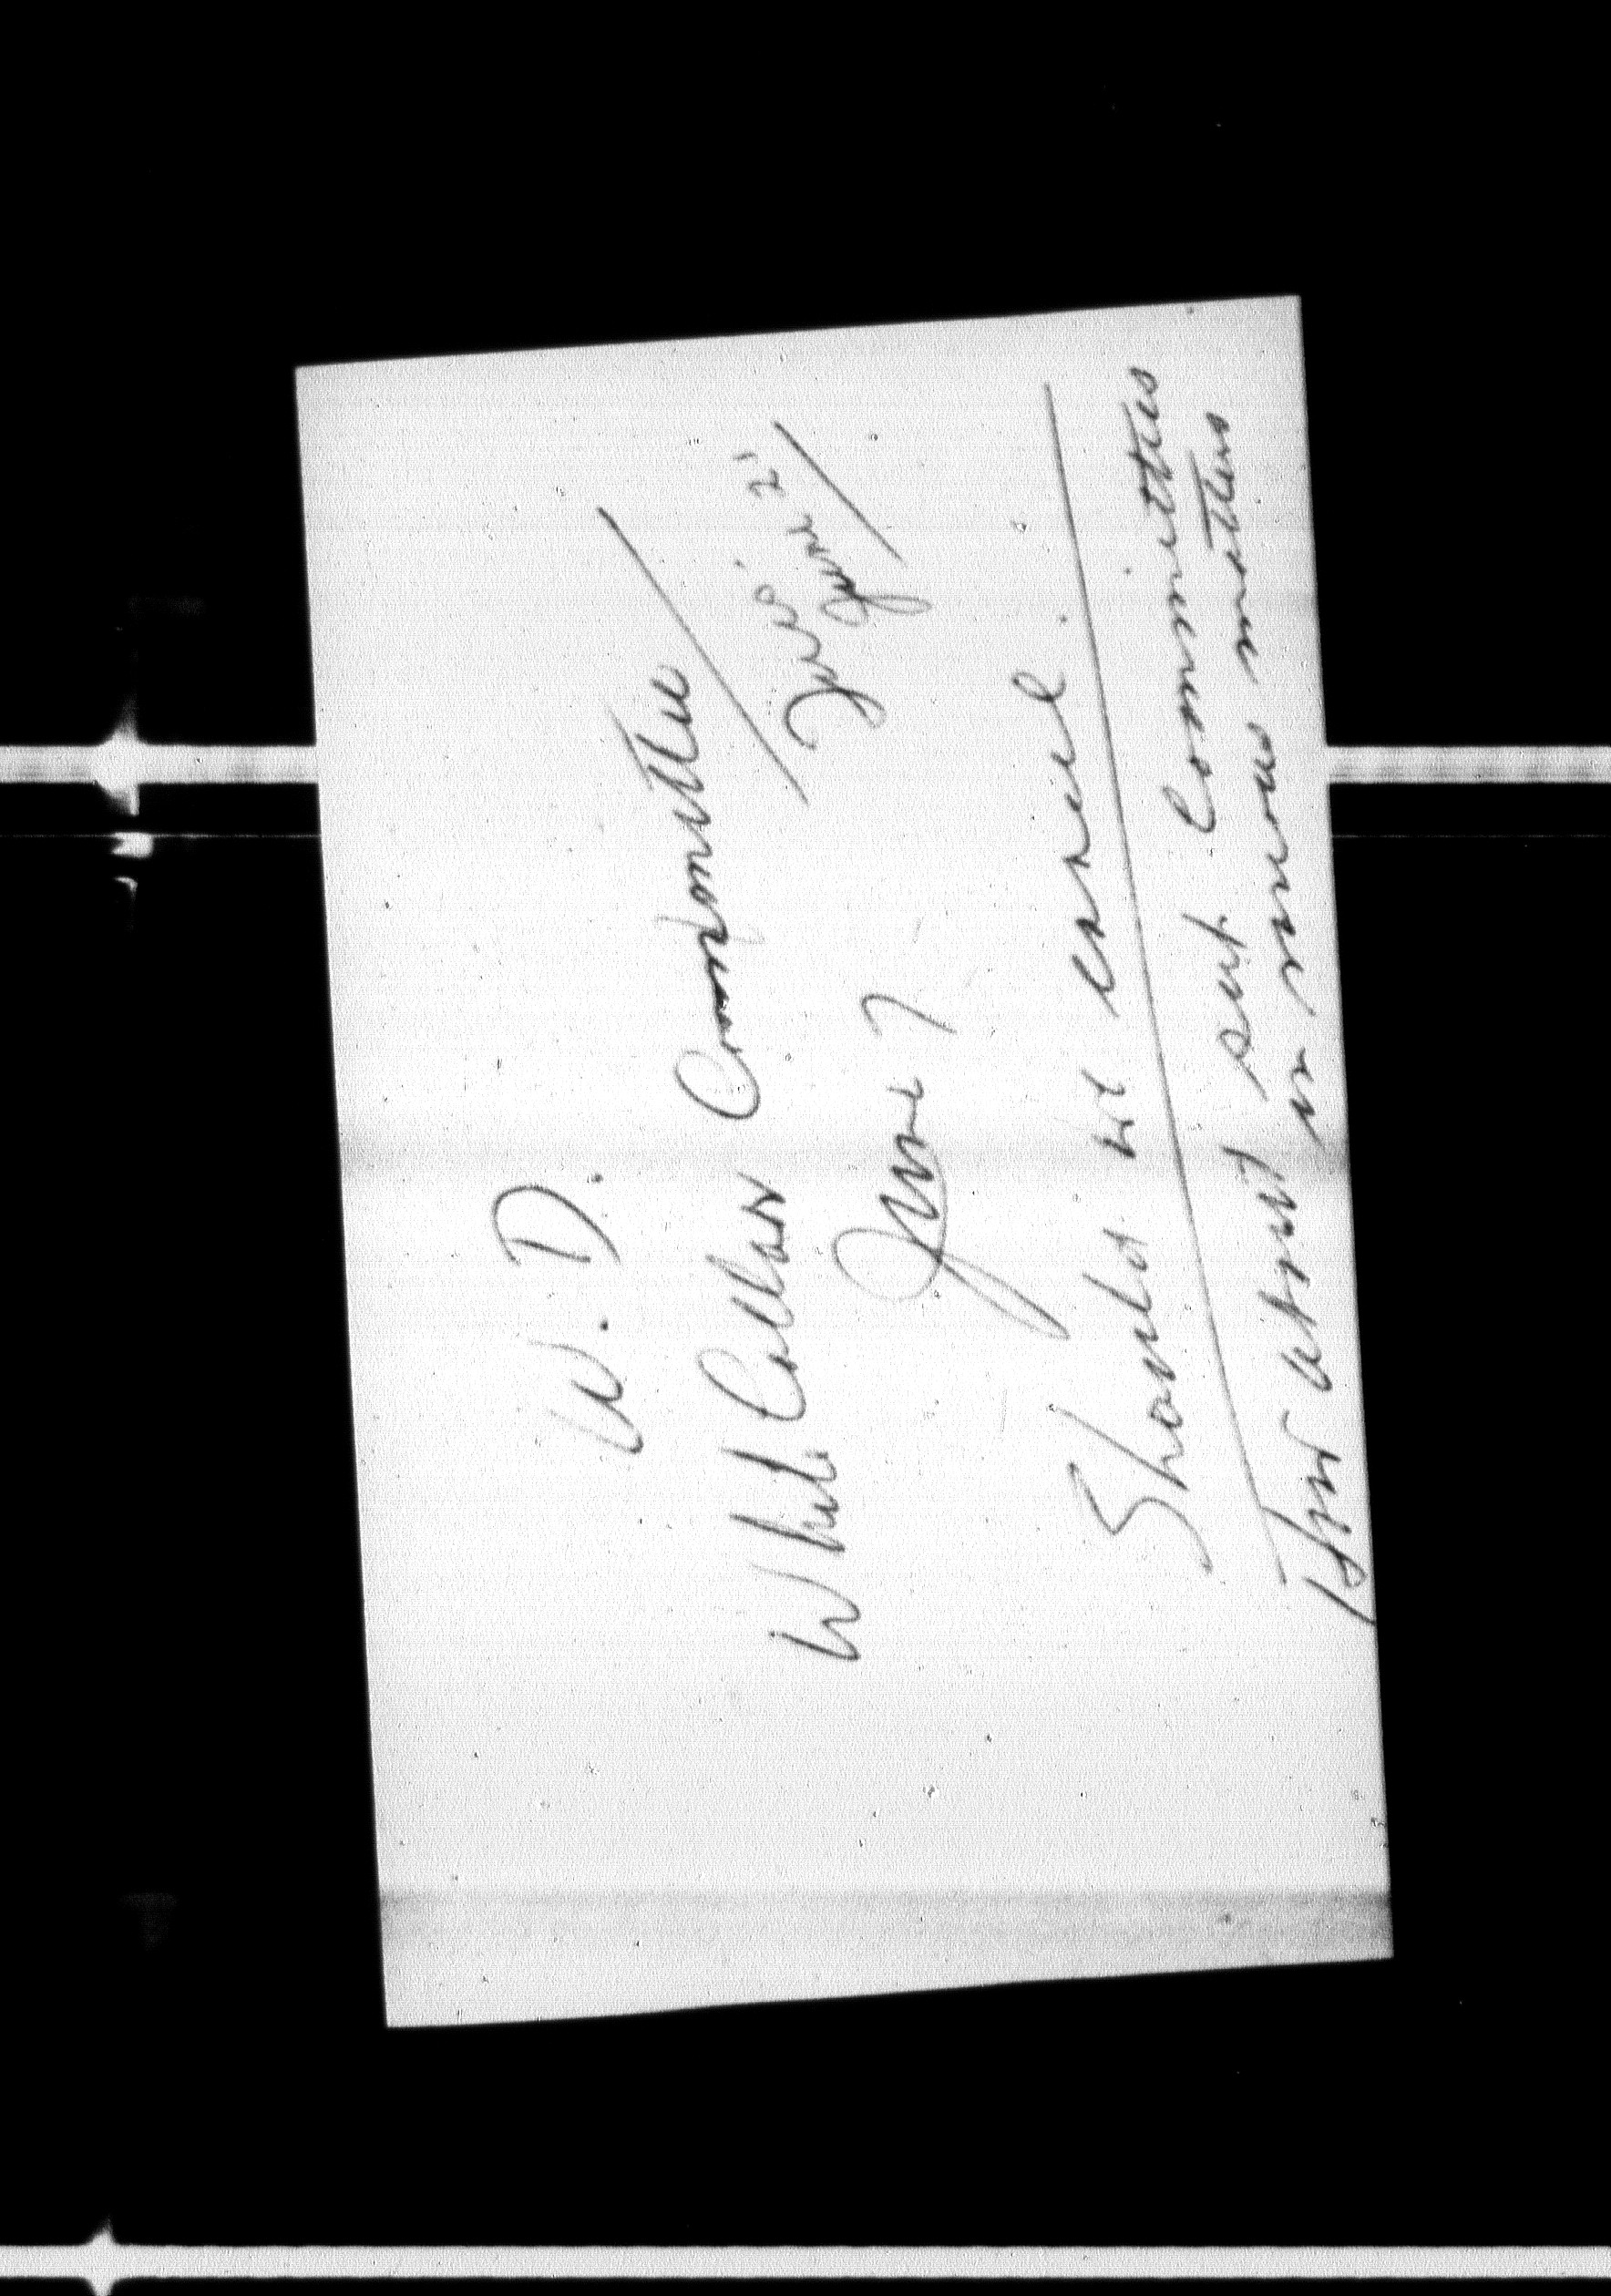 W. D.
White Collar Committee
June 7
June 21
Should we cancel.
How about sep. Committees
in various matters